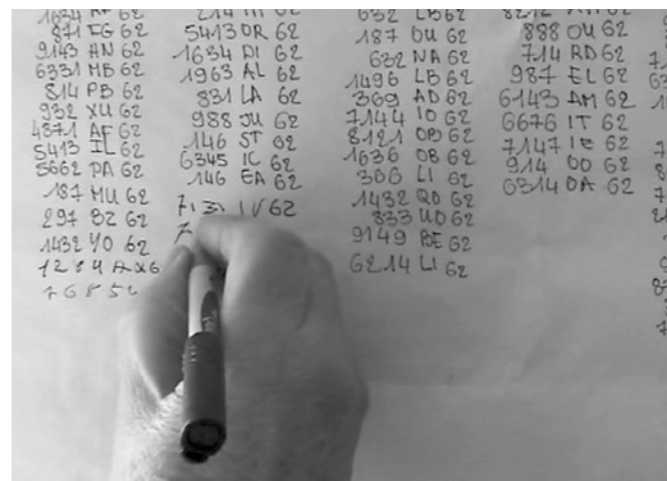 871 IG 62
9143 HN 62
6331 MB 62
814 PB 62
932 XU 62
4871 AF 62
5413 IL 62
5662 PA 62
187 MU 62
297 BZ 62
1432 YO 62
5413 OR 62
1634 DI 62
1963 AL 62
831 LA 62
988 JU 62
146 ST 62
6345 IC 62
146 EA 62
632 LB 62
187 OU 62
632 NA 62
1496 LB 62
369 AD 62
7144 IO 62
8121 OB 62
1636 OB 62
306 LI 62
1432 QO 62
833 UO 62
9149 BE 62
6214 LI 62
888 OU 62
714 RD 62
987 EL 62
6143 AM 62
6676 IT 62
7147 IE 62
914 OO 62
6314 OA 62